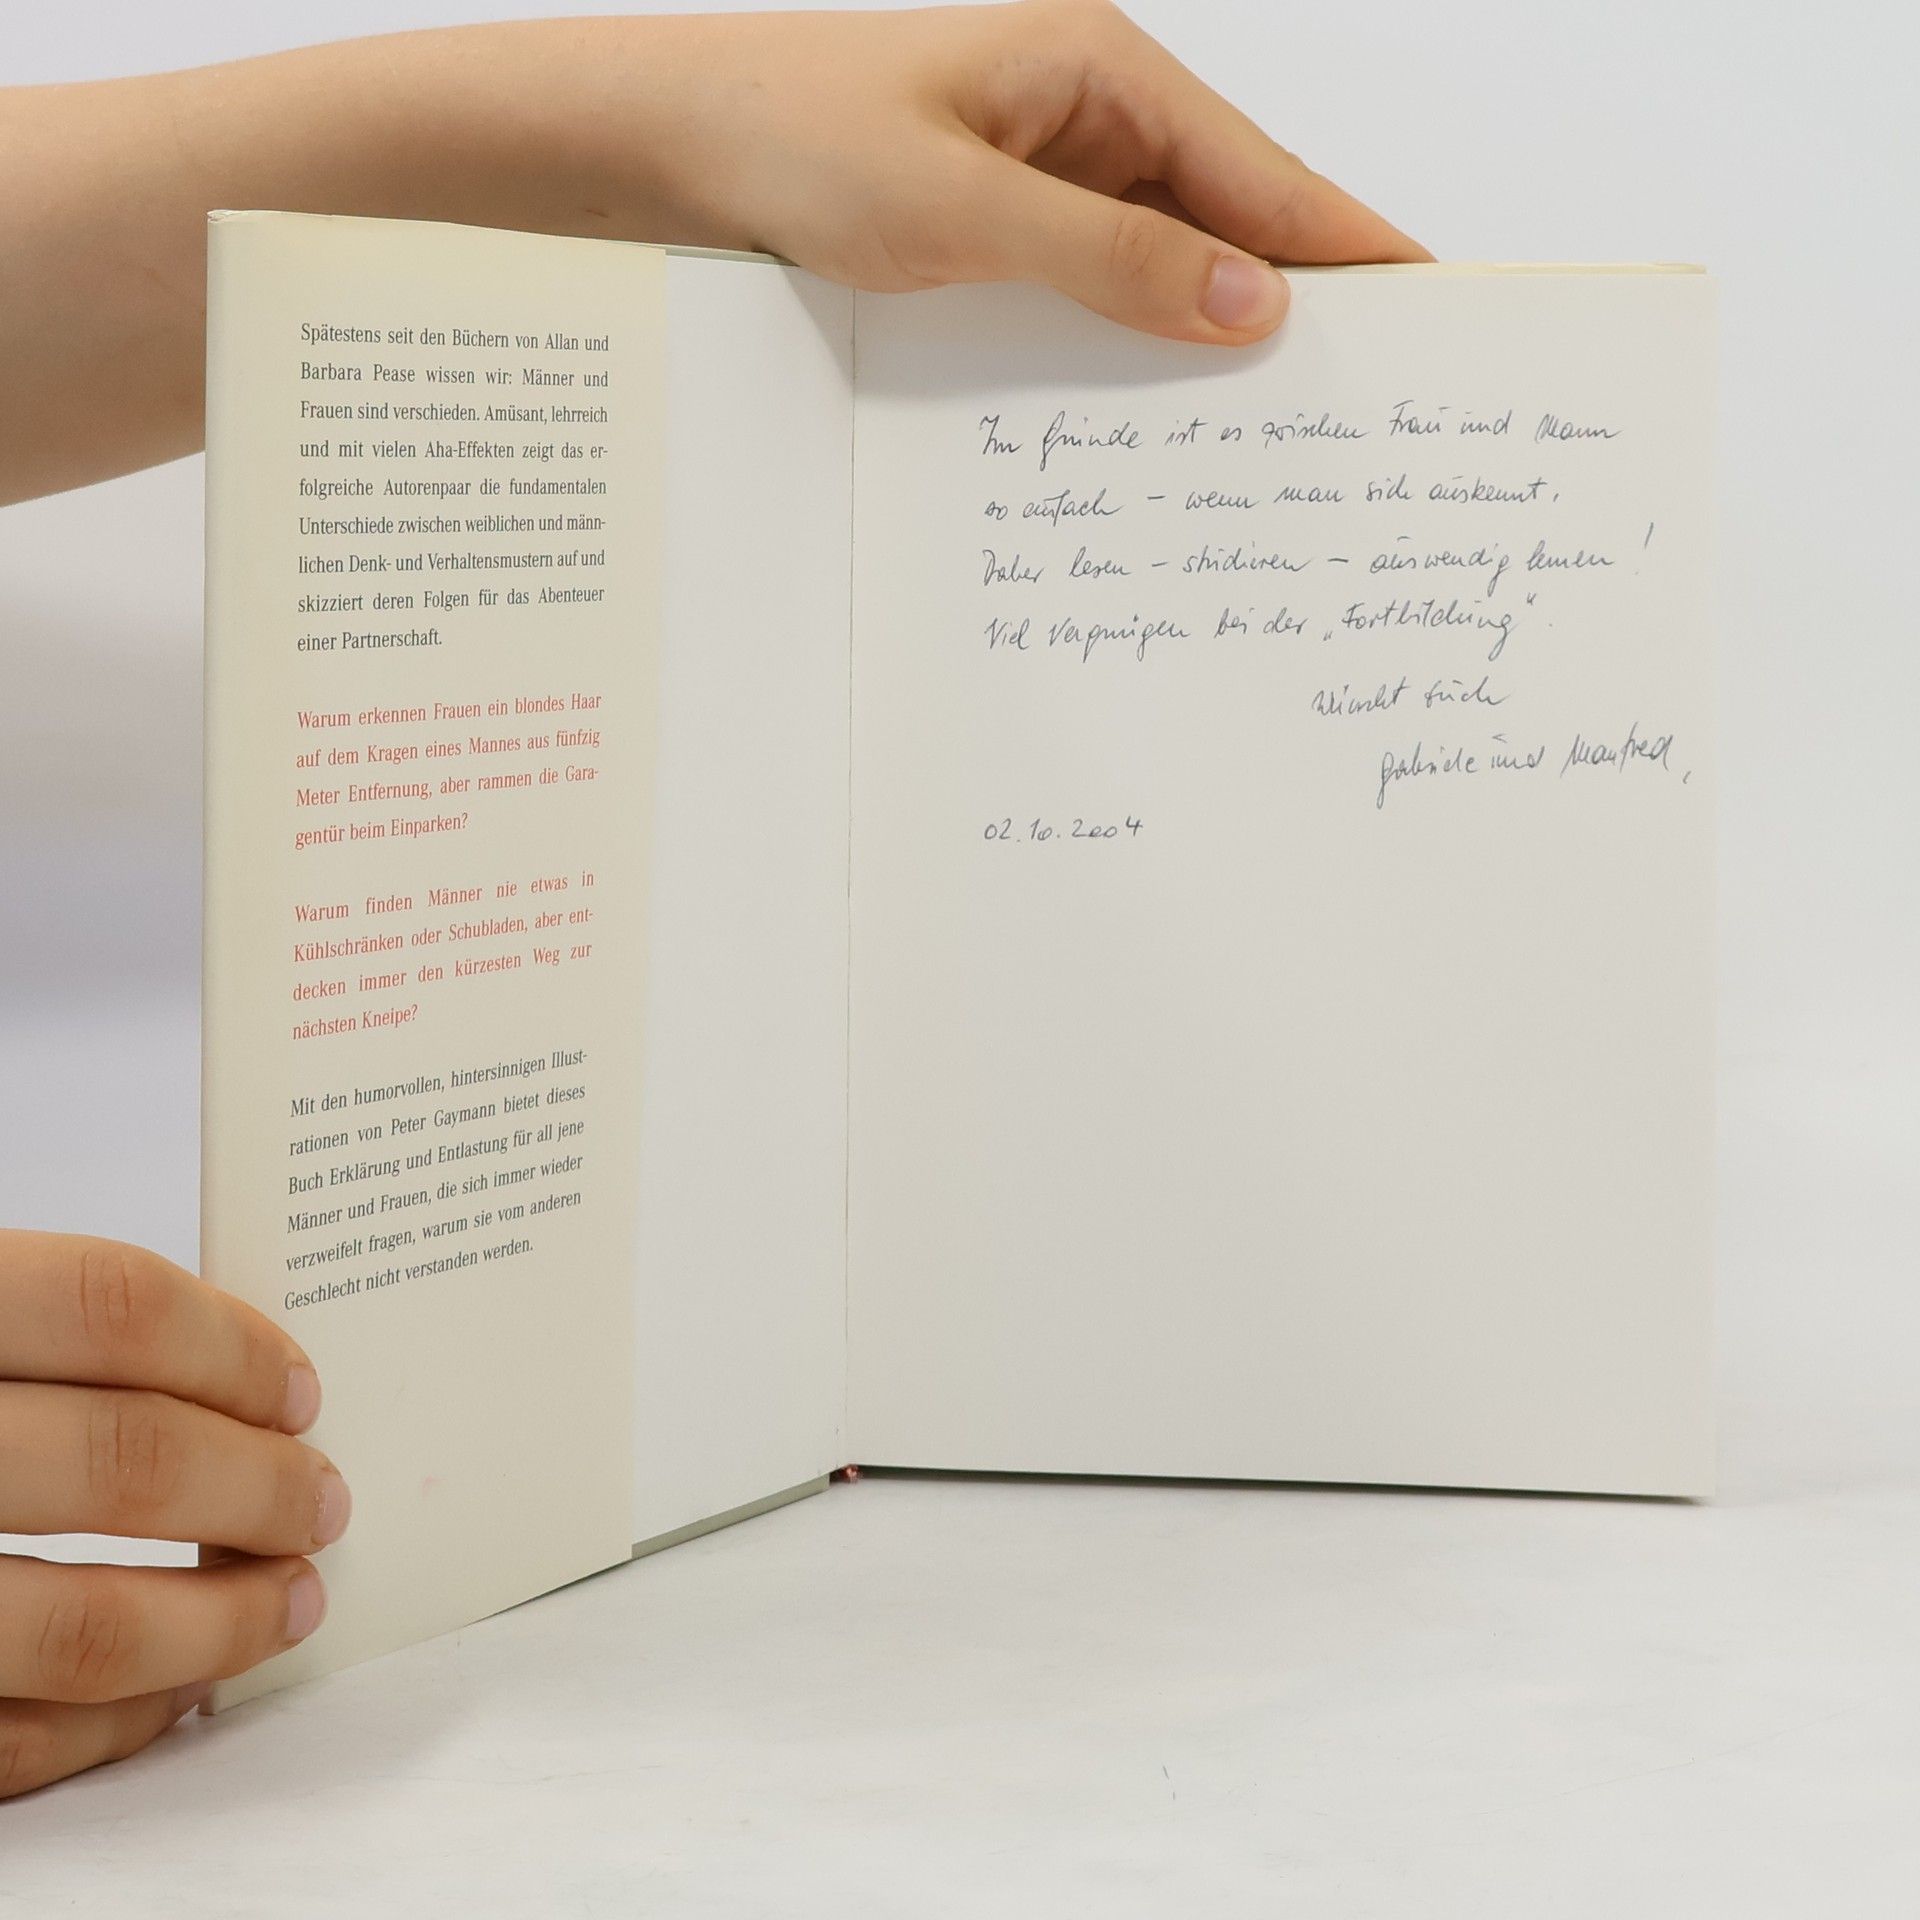 Spätestens seit den Büchern von Allan und
Barbara Pease wissen wir: Männer und
Frauen sind verschieden. Amüsant, lehrreich
und mit vielen Aha-Effekten zeigt das er-
folgreiche Autorenpaar die fundamentalen
Unterschiede zwischen weiblichen und männ-
lichen Denk- und Verhaltensmustern auf und
skizziert deren Folgen für das Abenteuer
einer Partnerschaft.
Warum erkennen Frauen ein blondes Haar
auf dem Kragen eines Mannes aus fünfzig
Meter Entfernung, aber rammen die Gara-
gentür beim Einparken?
Warum finden Männer nie etwas in
Kühlschränken oder Schubladen, aber ent-
decken immer den kürzesten Weg zur
nächsten Kneipe?
Mit den humorvollen, hintersinnigen Illust-
rationen von Peter Gaymann bietet dieses
Buch Erklärung und Entlastung für all jene
Männer und Frauen, die sich immer wieder
verzweifelt fragen, warum sie vom anderen
Geschlecht nicht verstanden werden.
Im Grunde ist es zwischen Frau und Mann
so einfach – wenn man sich auskennt.
Daher lesen – studieren – auswendig lernen!
Viel Vergnügen bei der „Fortbildung“.
Wünscht Euch
Gabriele und Manfred,
02.10.2004